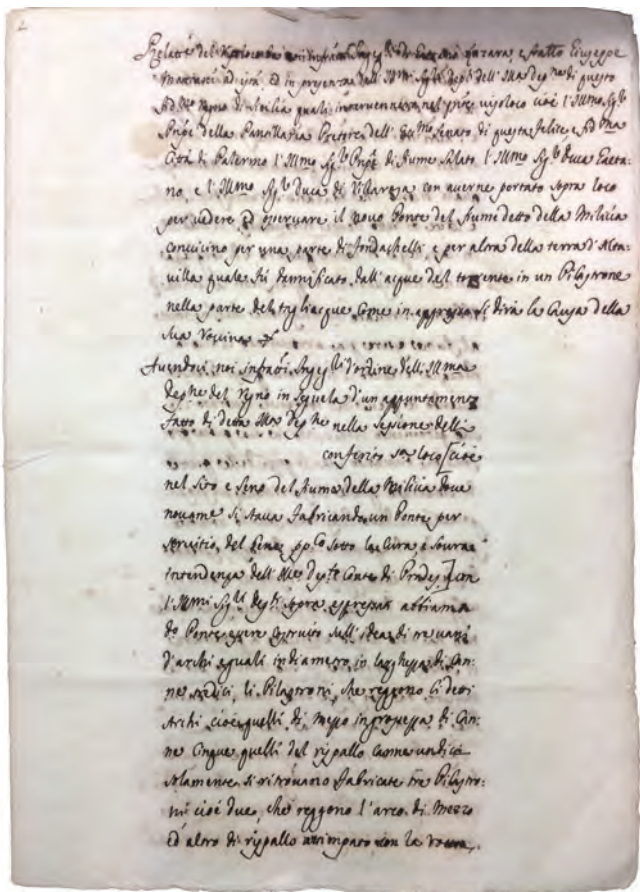 Relatne del
Mariani ed in presenza dell' Ill.mi Sig.ri Dep.ti dell' Ill.ma Dep.ne di questo
Regno di Sicilia quali intervennero nel cioè l'Ill.mo Sig.r
Pnpe della Pantellaria Pretore dell' Ecc.mo Senato di questa felice e
Città di Palermo l'Illmo Sig.r Pnpe di fiume Salato l'Illmo Sig.r Duca Gaeta:
no, e l'Illmo Sig.r Duca di Villareale con averne portato sopra loco
per vedere ed osservare il novo Ponte del fiume detto della Milicia
convicino per una parte di fondachelli e per altra della terra d'Alta:
villa quale fù dannificato dall'acque del torrente in un Pilastrone
nella parte del tagliacque come in appresso si dirà la Causa della
Sua Rovina
Avendoci noi infratti Ingeg.ri d'ordine dell' Ill.ma
Dep.ne del Regno in seguela d'un appuntamento
fatto di detta Ill.ma Dep.ne nella Sessione delli
conferito sop.a loco [cioè
nel Sito e Seno del fiume della Milicia dove
novame si stava fabricando un Ponte per
servitio del Gene: pp.co sotto la Cura, e Sovra:
intendenza dell' Ill.e Dep.te Conte di Prades] con
l'Illmi Sig.ri Dep.ti Sopra espressati abbiamo
do Ponte essere costruito sull'idea di
d'archi eguali in diametro in larghezza di Can:
ne sedici, li Pilastroni, che reggono li detti
Archi cioè quelli di mezzo in grossezza di Can:
ne Cinque quelli del rispallo Canne undici
solamente si ritrovano fabricate tre Pilastro:
ni cioè due, che reggono l'arco di Mezzo
ed altro di rispallo con la